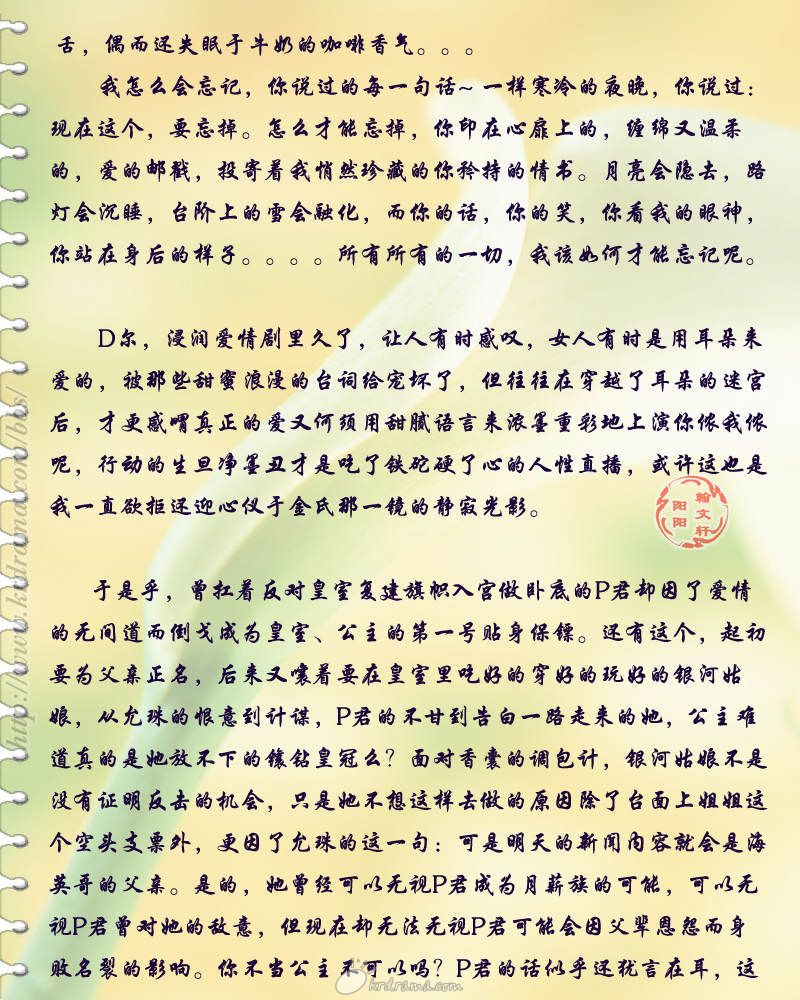 舌，偶而还失眠于牛奶的咖啡香气。。。
我怎么会忘记，你说过的每一句话~ 一样寒冷的夜晚，你说过：
现在这个，要忘掉。怎么才能忘掉，你印在心扉上的，缠绵又温柔
的，爱的邮戳，投寄着我悄然珍藏的你矜持的情书。月亮会隐去，路
灯会沉睡，台阶上的雪会融化，而你的话，你的笑，你看我的眼神，
你站在身后的样子。。。。所有所有的一切，我该如何才能忘记呢。
D尔，浸润爱情剧里久了，让人有时感叹，女人有时是用耳朵来
爱的，被那些甜蜜浪漫的台词给宠坏了，但往往在穿越了耳朵的迷宫
后，才更感喟真正的爱又何须用甜腻语言来浓墨重彩地上演你侬我侬
呢，行动的生旦净墨丑才是吃了铁砣硬了心的人性直播，或许这也是
我一直欲拒还迎心仪于金氏那一镜的静寂光影。
翰文轩
阳阳
于是乎，曾扛着反对皇室复建旗帜入宫做卧底的P君却因了爱情
的无间道而倒戈成为皇室、公主的第一号贴身保镖。还有这个，起初
要为父亲正名，后来又嚷着要在皇室里吃好的穿好的玩好的银河姑
娘，从允珠的恨意到计谋，P君的不甘到告白一路走来的她，公主难
道真的是她放不下的镶钻皇冠么？面对香囊的调包计，银河姑娘不是
没有证明反击的机会，只是她不想这样去做的原因除了台面上姐姐这
个空头支票外，更因了允珠的这一句：可是明天的新闻内容就会是海
英哥的父亲。是的，她曾经可以无视P君成为月薪族的可能，可以无
视P君曾对她的敌意，但现在却无法无视P君可能会因父辈恩怨而身
败名裂的影响。你不当公主不可以吗？P君的话似乎还犹言在耳，这
krdrama.com
http://www.krdrama.com/bbs/